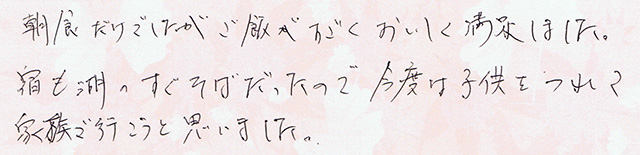 朝食だけでしたがご飯がすごくおいしく満足しました。
宿も湖のすぐそばだったので今度は子供をつれて
家族で行こうと思いました。